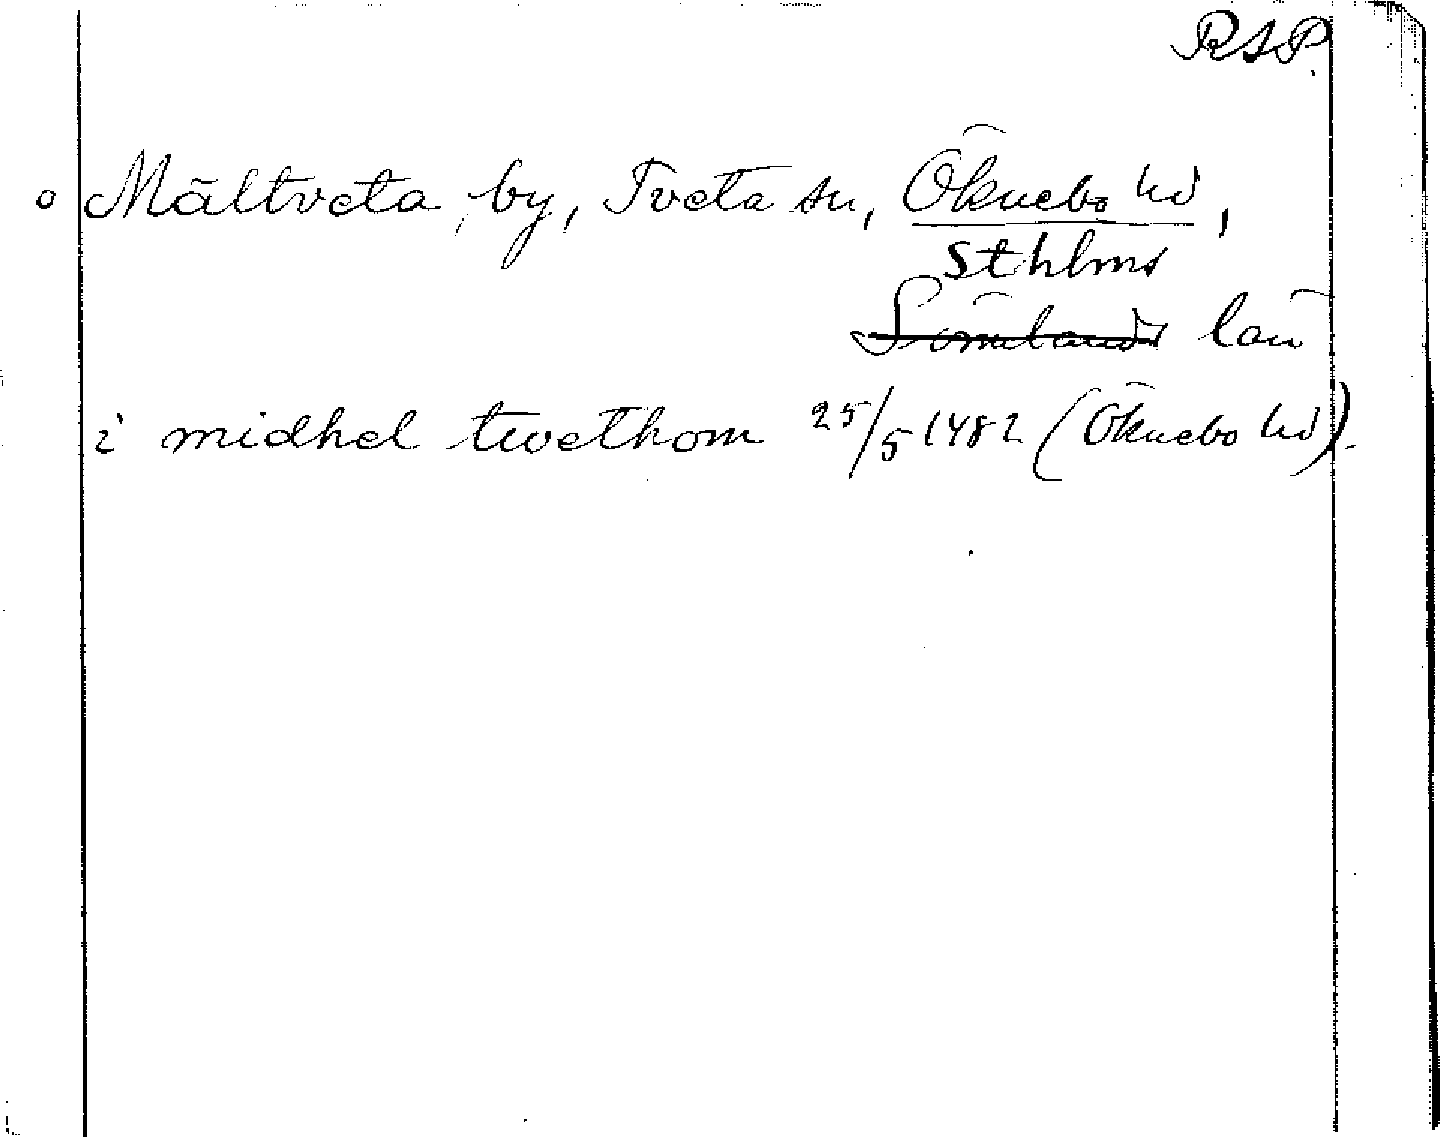 RAP.
o Mältveta, by, Tveta sn, Öknebo hd,
Sthlms
Sömlands län
i midhel twethom 25/5 1482 (Öknebo hd).